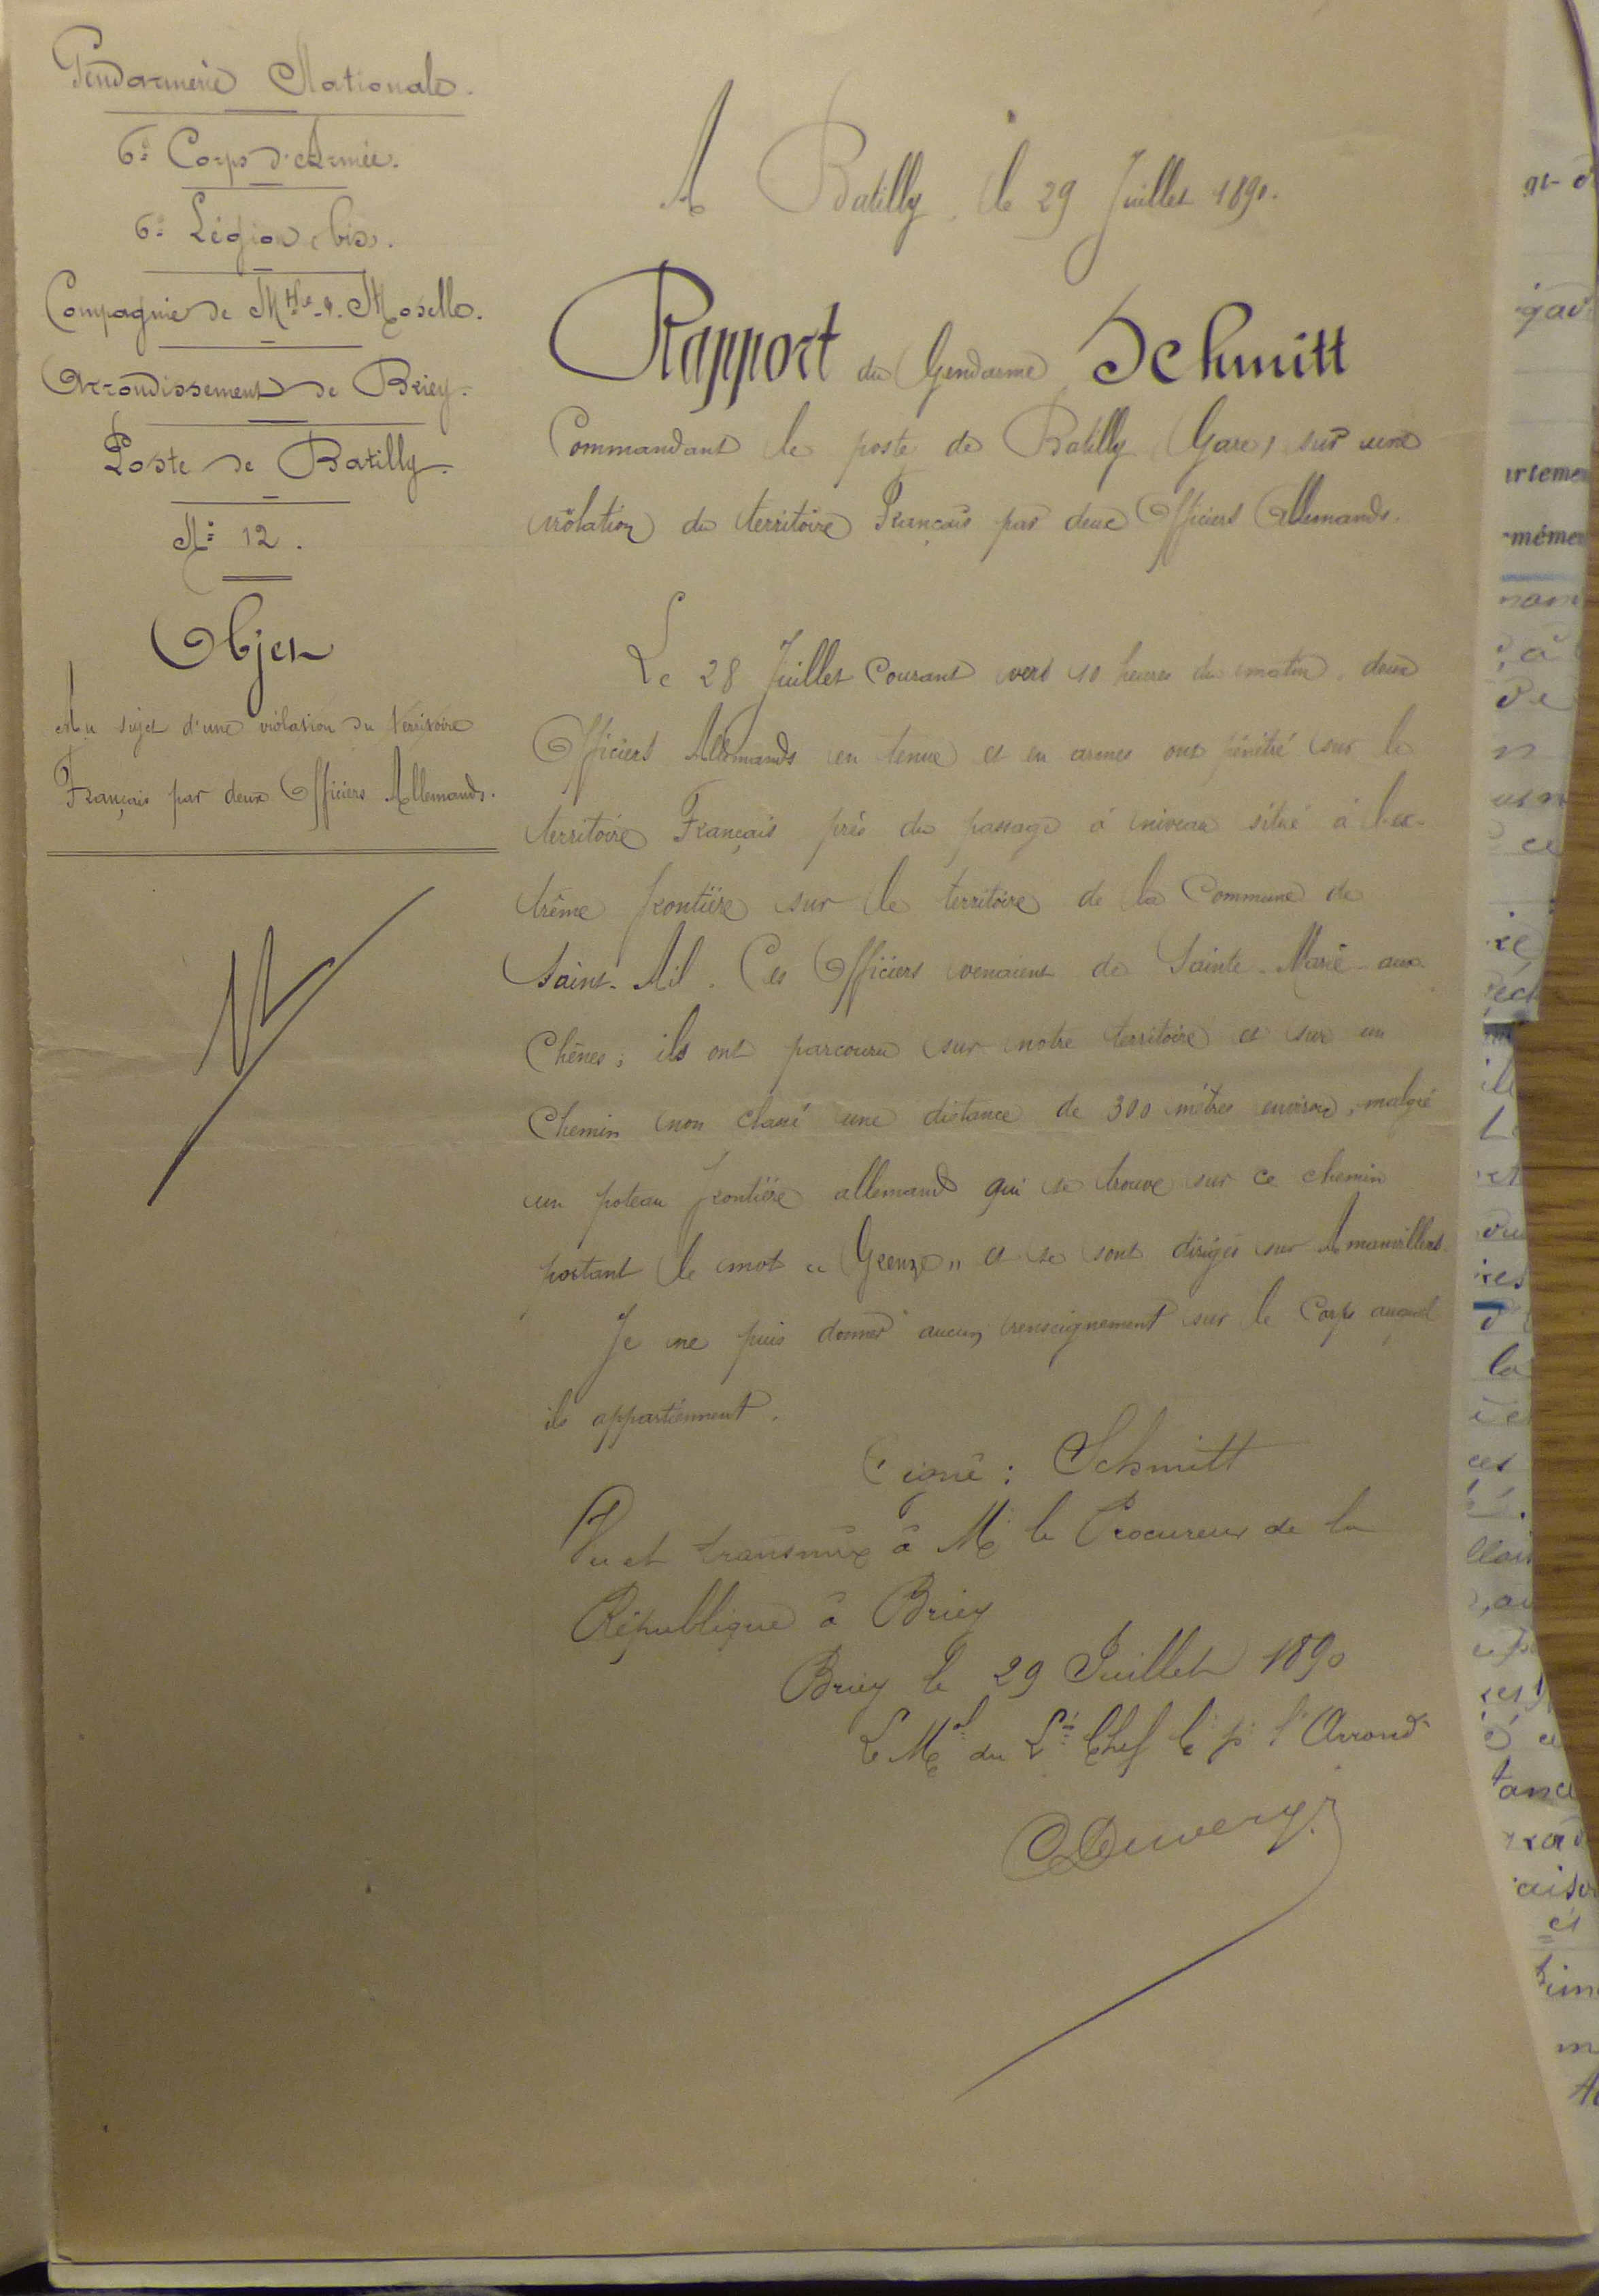 Gendarmerie Nationale.
6e Corps d'Armée.
6e Légion (bis).
Compagnie de Mthe-&-Moselle.
Arrondissement de Briey.
Poste de Batilly.
N° 12.
Objet
Au sujet d'une violation du territoire
Français par deux Officiers Allemands.
A Batilly, le 29 Juillet 1890.
Rapport du Gendarme Schmitt
Commandant le poste de Batilly (Gare) sur une
violation du territoire Français par deux Officiers Allemands.
Le 28 Juillet Courant vers 10 heures du matin, deux
Officiers Allemands en tenue et en armes ont pénétré sur le
territoire Français près du passage à niveau situé à l'ex-
trême frontière sur le territoire de la Commune de
Saint-Ail. Ces Officiers venaient de Sainte-Marie-aux-
Chênes; ils ont parcouru sur notre territoire et sur un
Chemin non classé une distance de 300 mètres environ, malgré
un poteau frontière allemand qui se trouve sur ce chemin
portant le mot "Grenze" et se sont dirigés sur Amanvillers.
Je ne puis donner aucun renseignement sur le Corps auquel
ils appartiennent.
Signé: Schmitt
Vu et transmis à Mr le Procureur de la
République à Briey
Briey le 29 Juillet 1890
Le Mal du Lt Chef l'Arrondt